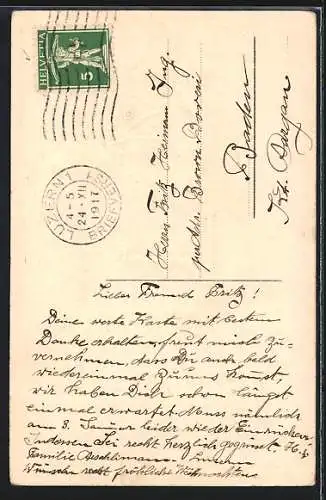 HELVETIA
5
LUZERN 1
4-5
24.XII.
1917
BRIEFVERS.
Herrn Fritz Heimann Ing.
per Adr. Brown Boveri
Baden
Kt. Aargau
Lieber Freund Fritz!
Deine werte Karte mit bestem
Danke erhalten, freut mich zu
vernehmen, dass Du auch bald
wiedereinmal zu uns kommst,
wir haben Dich schon längst
einmal erwartet. Muss nämlich
am 3. Januar leider wieder Einrücken.
Indessen Sei recht herzlich gegrüsst.
Familie Aeschlimann Luzern
Wünsche recht fröhliche Weihnachten